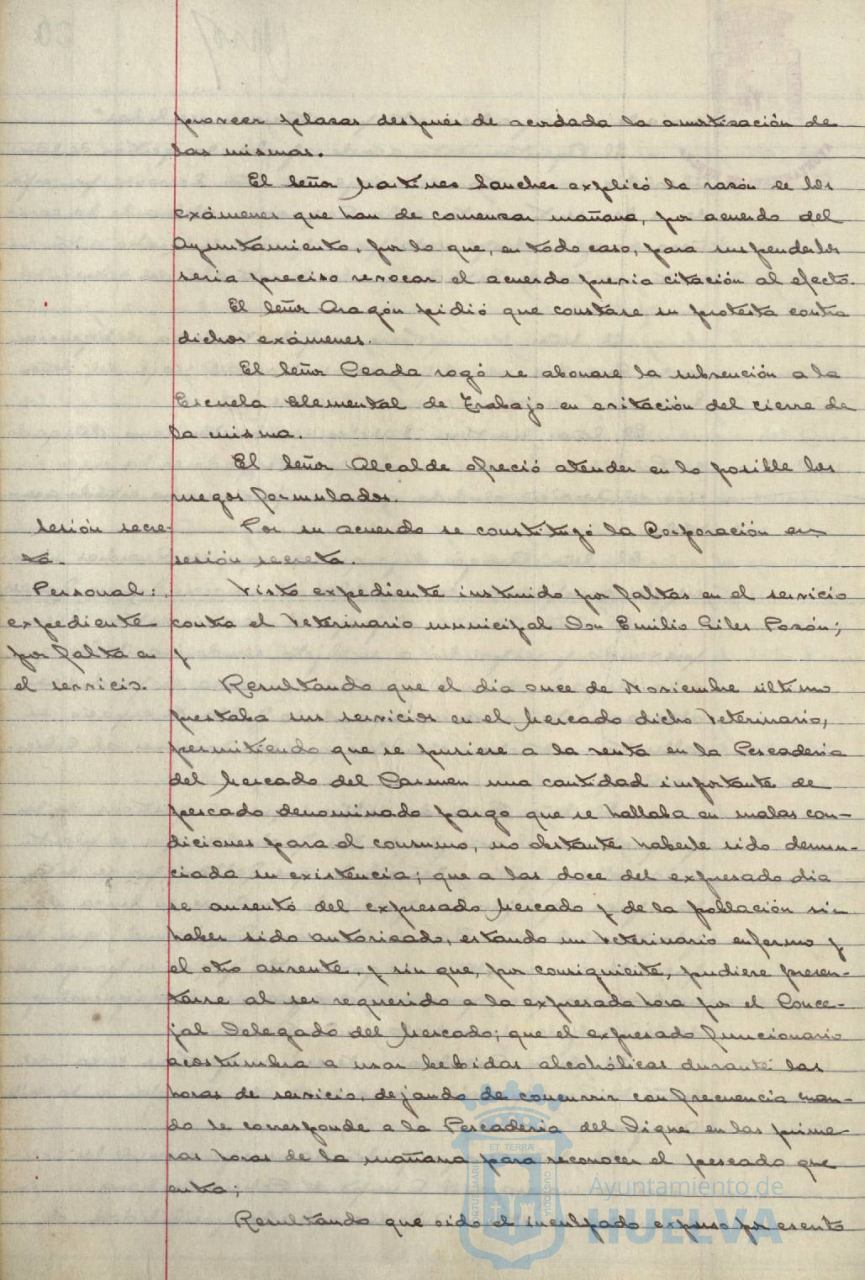 proveer plazas después de acordada la amortización de
las mismas.
El Señor Martínez Sanchez explicó la razón de los
exámenes que han de comenzar mañana, por acuerdo del
Ayuntamiento, por lo que, en todo caso, para suspenderlos
seria preciso revocar el acuerdo previa citación al efecto.
El Señor Aragón pidió que constase su protesta contra
dichos exámenes.
El Señor Ceada rogó se abonase la subvención a la
Escuela Elemental de Trabajo en evitación del cierre de
la misma.
El Señor Alcalde ofreció atender en lo posible los
ruegos formulados.
Sesión secre-
ta.
Por su acuerdo se constituyó la Corporación en
sesión secreta.
Personal:
expediente
por falta en
el servicio.
Visto expediente instruido por faltas en el servicio
contra el Veterinario municipal Don Emilio Giles Pozón;
y
Resultando que el dia once de Noviembre último
prestaba sus servicios en el Mercado dicho Veterinario,
permitiendo que se pusiese a la venta en la Pescaderia
del Mercado del Carmen una cantidad importante de
pescado denominado pargo que se hallaba en malas con-
diciones para el consumo, no obstante haberle sido denun-
ciada su existencia; que a las doce del expresado dia
se ausentó del expresado Mercado y de la población sin
haber sido autorizado, estando un Veterinario enfermo y
el otro ausente, y sin que, por consiguiente, pudiese presen-
tarse al ser requerido a la expresada hora por el Conce-
jal Delegado del Mercado; que el expresado funcionario
acostumbra a usar bebidas alcohólicas durante las
horas de servicio, dejando de concurrir con frecuencia cuan-
do le corresponde a la Pescaderia del Dique en las prime-
ras horas de la mañana para reconocer el pescado que
entra;
Resultando que oido el inculpado expuso por escrito
ET TERRAE
Ayuntamiento de
HUELVA